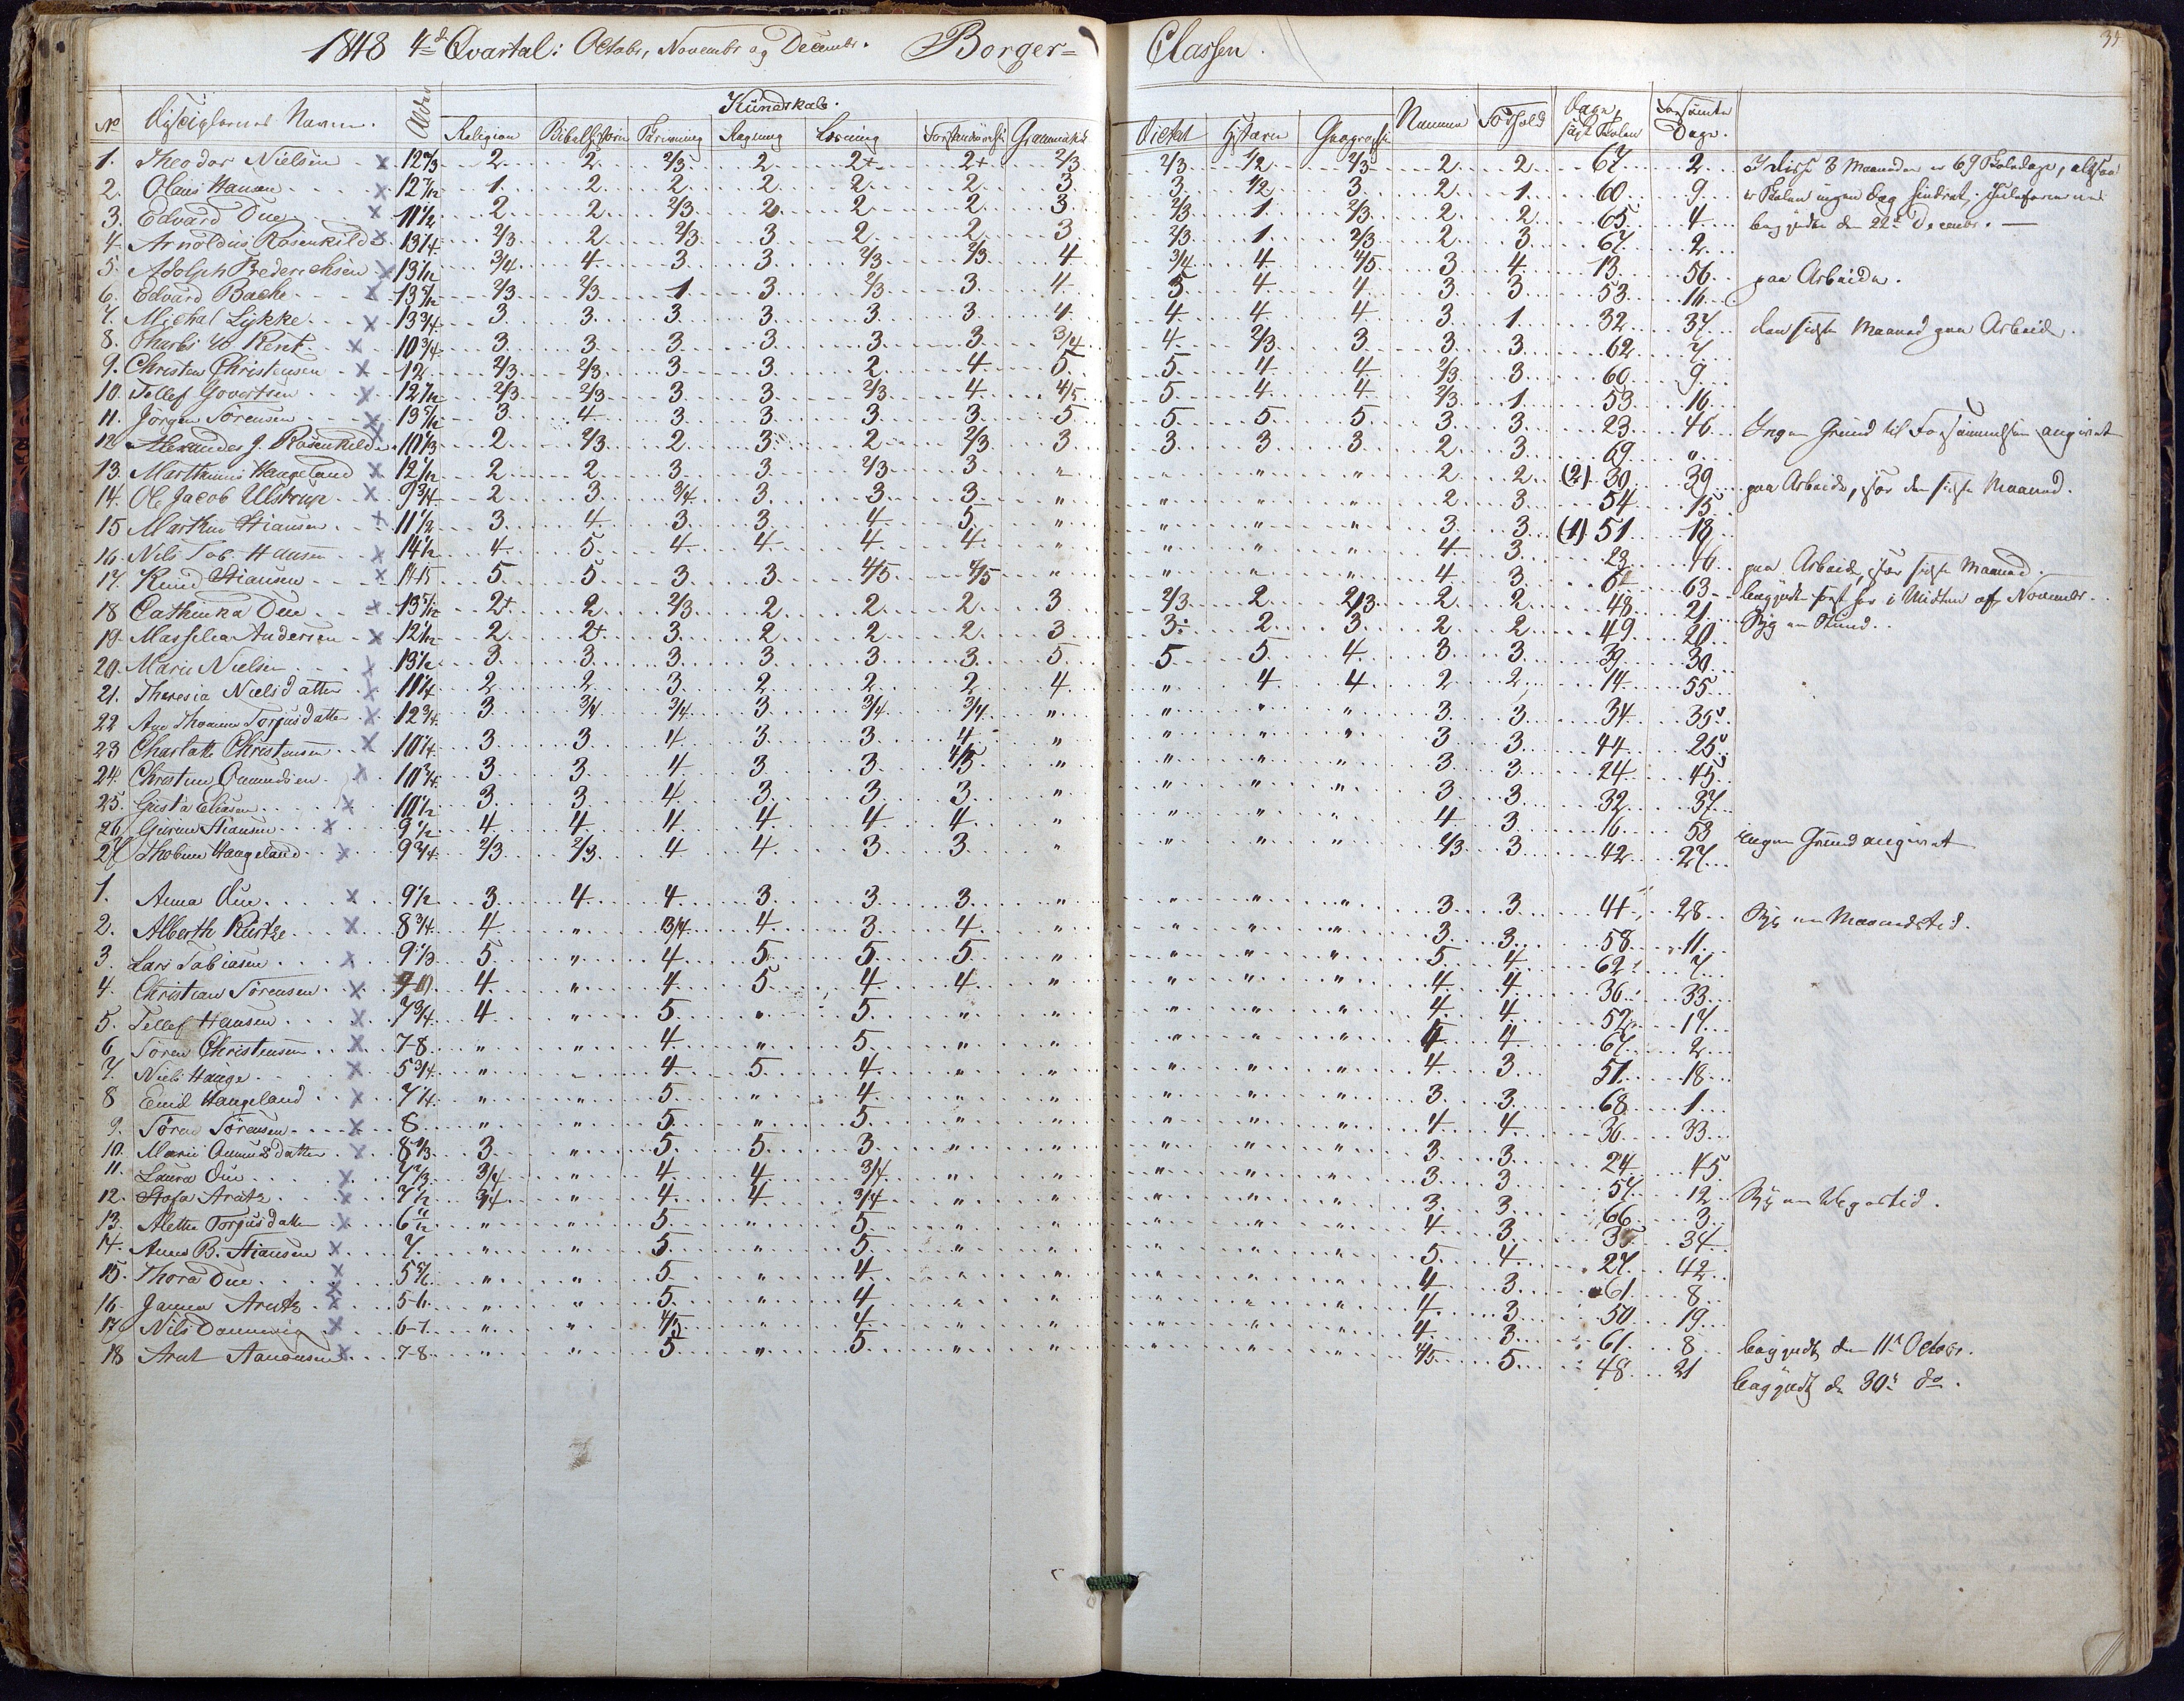 1848 4de Qvartal: Octobr, Novembr og Decembr. Borger= Classen.
39
Kundskab.
No Disciplernes Navne. Alder Religion Bibelhistorie Skrivning Regning Læsning Forstandsøvelse Grammatik Dictat Historie Geographi Nemme Forhold Dage søgt Skolen Forsømte Dage.
1. Theodor Nielsen x 12 2/3 2 2 2/3 2 2+ 2+ 2/3 2/3 1/2 2/3 2 2 67 2 I disse 3 Maaneder er 69 Skoledage, altsaa
2. Olaus Hansen x 12 7/12 1 2 2 2 2 2 3 3 1/2 3 2 1 60 9 er Skolen ingen Dag hindret. Juleferierne
3. Edvard Due x 11 1/2 2 2 2/3 2 2 2 3 2/3 1 2/3 2 2 65 4 begyndte den 22de Decembr.
4. Arnoldus Rosenkilde x 13 1/4 2/3 2 2/3 3 2 2 3 2/3 1 2/3 2 3 67 2
5. Adolph Frederichsen x 13 1/12 3/4 4 3 3 2/3 2/3 4 3/4 4 4/5 3 4 13 56 paa Arbeide.
6. Edvard Bache x 13 5/12 2/3 2/3 1 3 2/3 3 4 5 4 4 3 3 53 16
7. Michal Lykke x 13 3/4 3 3 3 3 3 3 4 4 4 4 3 1 32 37 den sidste Maaned paa Arbeide.
8. Charles W Kent x 10 3/4 3 3 3 3 3 3 3/4 4 2/3 3 3 3 62 7
9. Christen Christensen x 12 2/3 2/3 3 3 2 4 5 5 4 4 2/3 3 60 9
10. Tellef Govertsen x 12 7/12 2/3 2/3 3 3 2/3 4 4/5 5 4 4 2/3 1 53 16
11. Jørgen Sørensen x 13 5/12 3 4 3 3 3 3 5 5 5 5 3 3 23 46 Ingen Grund til Forsømmelsen angivet
12. Alexander J. Rosenkilde 10 1/3 2 2/3 2 3 2 2/3 3 3 3 3 2 3 69 "
13. Marthinius Haageland x 12 1/12 2 2 3 3 2/3 3 " " " " 2 2 (2) 30 39 paa Arbeide, især den sidste Maaned.
14. Ole Jacob Ulstrup x 9 3/4 2 3 3/4 3 3 3 " " " " 2 3 54 15
15 Marthin Stiansen x 11 1/2 3 4 3 3 4 5 " " " " 3 3 (1) 51 18
16. Nils Tob. Hansen x 14 1/2 4 5 4 4 4 4 " " " " 4 3 23 46 paa Arbeide, især sidste Maaned.
17. Knud Stiansen x 14-15 5 5 3 3 4/5 4/5 " " " " 4 3 6 63 begyndte først her i Midten af Novembr.
18 Cathinka Due x 13 5/12 2+ 2 2/3 2 2 2 3 2/3 2 2/3 2 2 48 21 Syg en Stund.
19. Masselia Andersen x 12 1/12 2 2+ 3 2 2 2 3 3÷ 2 3 2 2 49 20
20. Marie Nielsen x 13 1/2 3 3 3 3 3 3 5 5 5 4 3 3 39 30
21. Theresia Nielsdatter x 11 1/4 2 2 3 2 2 2 4 " 4 4 2 2 14 55
22 Ane Thomine Torjusdatter x 12 3/4 3 3/4 3/4 3 3/4 3/4 " " " " 3 3 34 35
23 Charlotte Christensen x 10 1/4 3 3 4 3 3 4 " " " " 3 3 44 25
24. Christine Omundsen x 10 3/4 3 3 4 3 3 4/5 " " " " 3 3 24 45
25. Gusta Eliasen x 10 1/2 3 3 4 3 3 3 " " " " 3 3 32 37
26. Gurine Stiansen x 9 1/2 4 4 4 4 4 4 " " " " 4 3 16 53 ingen Grund angivet
27. Thobine Haageland x 9 3/4 2/3 2/3 4 4 3 3 " " " " 2/3 3 42 27
1. Anna Due x 9 1/2 3 4 4 3 3 3 " " " " 3 3 41 28 Syg en Maanedstid.
2. Alberth Kurtze x 8 3/4 4 " 3/4 4 3 4 " " " " 3 3 58 11
3. Lars Tobiasen x 9 1/3 5 " 4 5 5 5 " " " " 5 4 62 7
4. Christian Sørensen x 4 " 4 5 4 4 " " " " 4 4 36 33
5. Tellef Hansen x 7 3/4 4 " 5 " 5 " " " " " 4 4 52 17
6. Søren Christensen x 7-8 " " 4 " 5 " " " " " 4 4 67 2
7. Niels Hauge x 5 3/4 " " 4 5 4 " " " " " 4 3 51 18
8 Emil Haageland x 7 1/4 " " 5 " 4 " " " " " 3 3 68 1
9. Søren Sørensen x 8 " " 5 " 5 " " " " " 4 4 36 33
10. Marie Omundsdatter x 8 1/3 3 " 5 5 3 " " " " " 3 3 24 45
11. Laura Due x 7 2/3 3/4 " 4 4 3/4 " " " " " 3 3 57 12 Syg en Uegestid.
12. Stofa Arntz x 7 1/2 3/4 " 4 4 3/4 " " " " " 3 3 66 3
13. Alette Torjusdatter x 6 11/12 " " 5 " 5 " " " " " 4 3 35 34
14. Anne B. Stiansen x 7 " " 5 " 5 " " " " " 5 4 27 42
15. Thora Due x 5 5/6 " " 5 " 4 " " " " " 4 3 61 8
16. Janna Arntz x 5-6 " " 5 " 4 " " " " " 4 3 50 19
17. Nils Dannevig x 6-7 " " 4/5 " 4 " " " " " 4 3 61 8 begyndte den 11te Octobr.
18 Arnt Aanonsen x 7-8 " " 5 " 5 " " " " " 4/5 5 48 21 begyndte de 30te do.